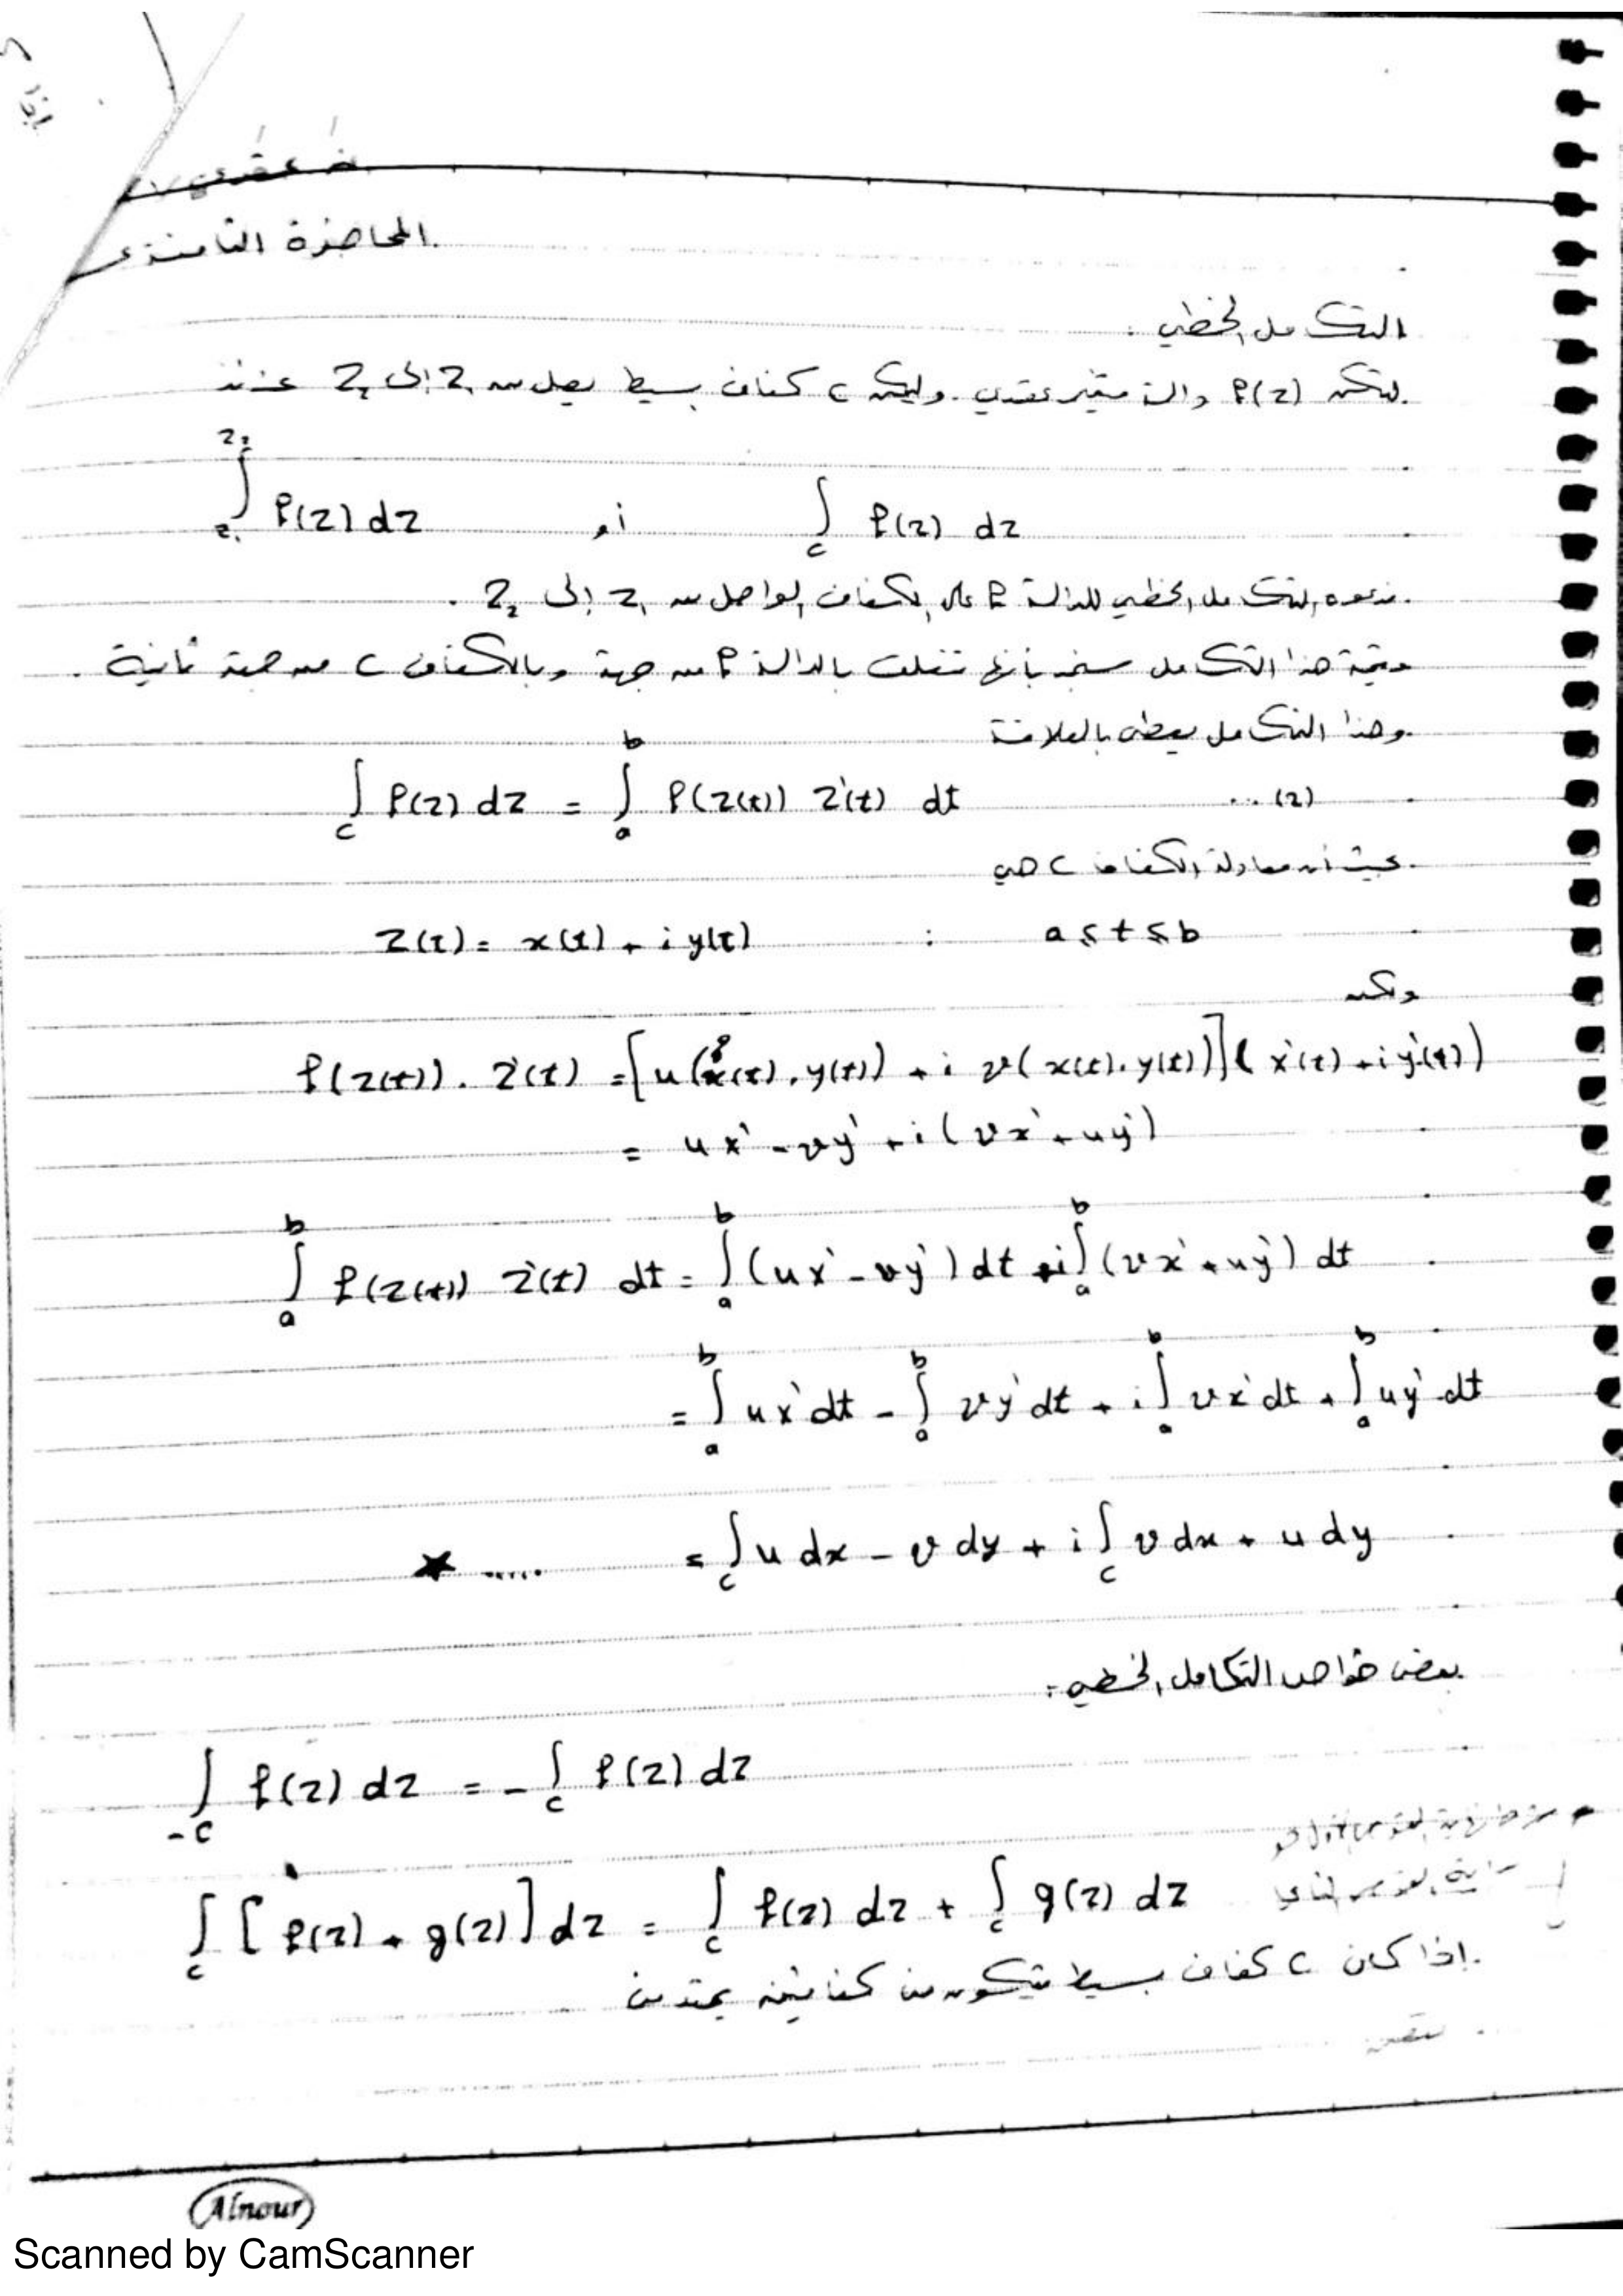 إذا
المحاضرة الثامنة
التكامل الخطي :
لتكن f(z) دالة متغير عقدي. وليكن c كفاف بسيط يصل من z₁ إلى z₂ عندئذ
∫_c f(z) dz أو ∫_{z₁}^{z₂} f(z) dz
ندعوه التكامل الخطي للدالة f على الكفاف الواصل من z₁ إلى z₂ .
وقيمة هذا التكامل سنجد بأنها تتعلق بالدالة f من جهة وبالكفاف c من جهة ثانية .
وهذا التكامل يعطى بالعلاقة
∫_c f(z) dz = ∫_a^b f(z(t)) z'(t) dt ...(2)
بحيث أن معادلة الكفاف c هي
z(t) = x(t) + i y(t) : a ≤ t ≤ b
ولكن
f(z(t)) . z'(t) = [u(x(t), y(t)) + i v(x(t), y(t))] (x'(t) + i y'(t))
= ux' - vy' + i(vx' + uy')
∫_a^b f(z(t)) z'(t) dt = ∫_a^b (ux' - vy') dt + i∫_a^b (vx' + uy') dt
= ∫_a^b ux' dt - ∫_a^b vy' dt + i∫_a^b vx' dt + ∫_a^b uy' dt
= ∫_c u dx - v dy + i∫_c v dx + u dy ..... ★
بعض خواص التكامل الخطي :
∫_{-c} f(z) dz = -∫_c f(z) dz
∫_c [f(z) + g(z)] dz = ∫_c f(z) dz + ∫_c g(z) dz
إذا كان c كفاف بسيط يتكون من كفافين يمتد من
Alnour
Scanned by CamScanner